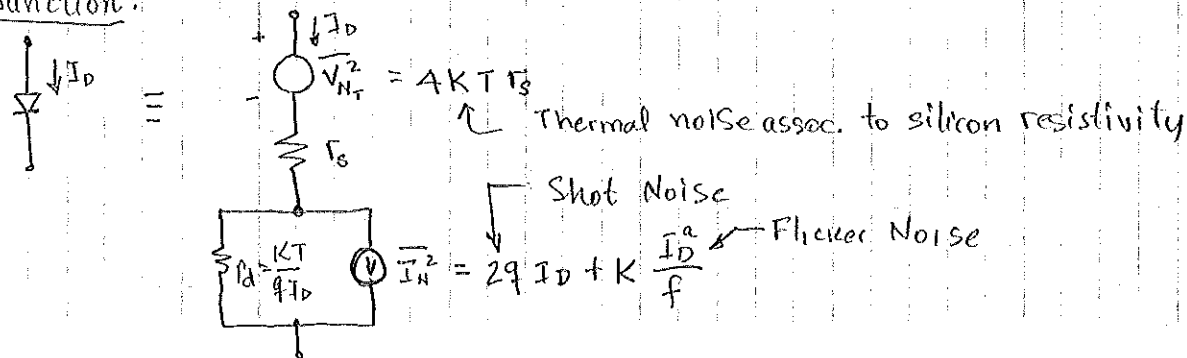 Junction.
I_D
≡
+
I_D
-
\overline{V_{N_T}^2} = 4KT r_s
Thermal noise assoc. to silicon resistivity
r_s
Shot Noise
r_d = \frac{KT}{qI_D}
\overline{I_N^2} = 2q I_D + K \frac{I_D^a}{f}
Flicker Noise